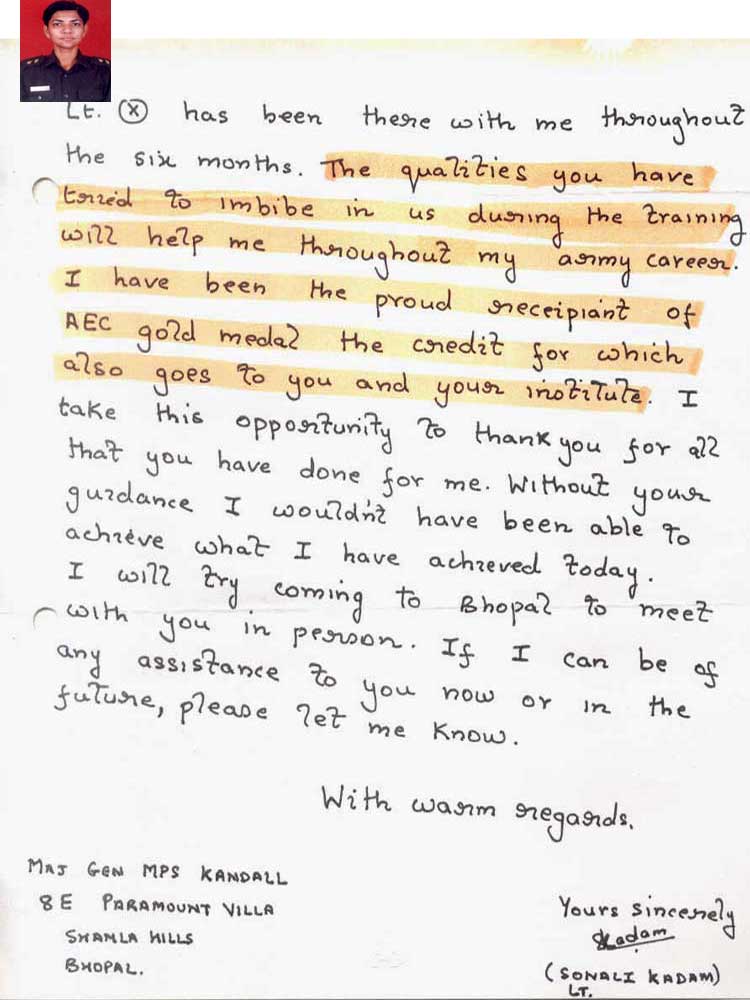 Lt. (X) has been there with me throughout
the six months. The qualities you have
torried to imbibe in us during the training
will help me throughout my army career.
I have been the proud receipiant of
AEC gold medal the credit for which
also goes to you and your institute. I
take this opportunity to thank you for all
that you have done for me. Without your
guidance I wouldn't have been able to
achieve what I have achieved today.
I will try coming to Bhopal to meet
with you in person. If I can be of
any assistance to you now or in the
future, please let me know.
With warm regards.
MAJ GEN MPS KANDALL
8E PARAMOUNT VILLA
SHAMLA HILLS
BHOPAL.
Yours sincerely
Kadam
(SONALI KADAM)
LT.